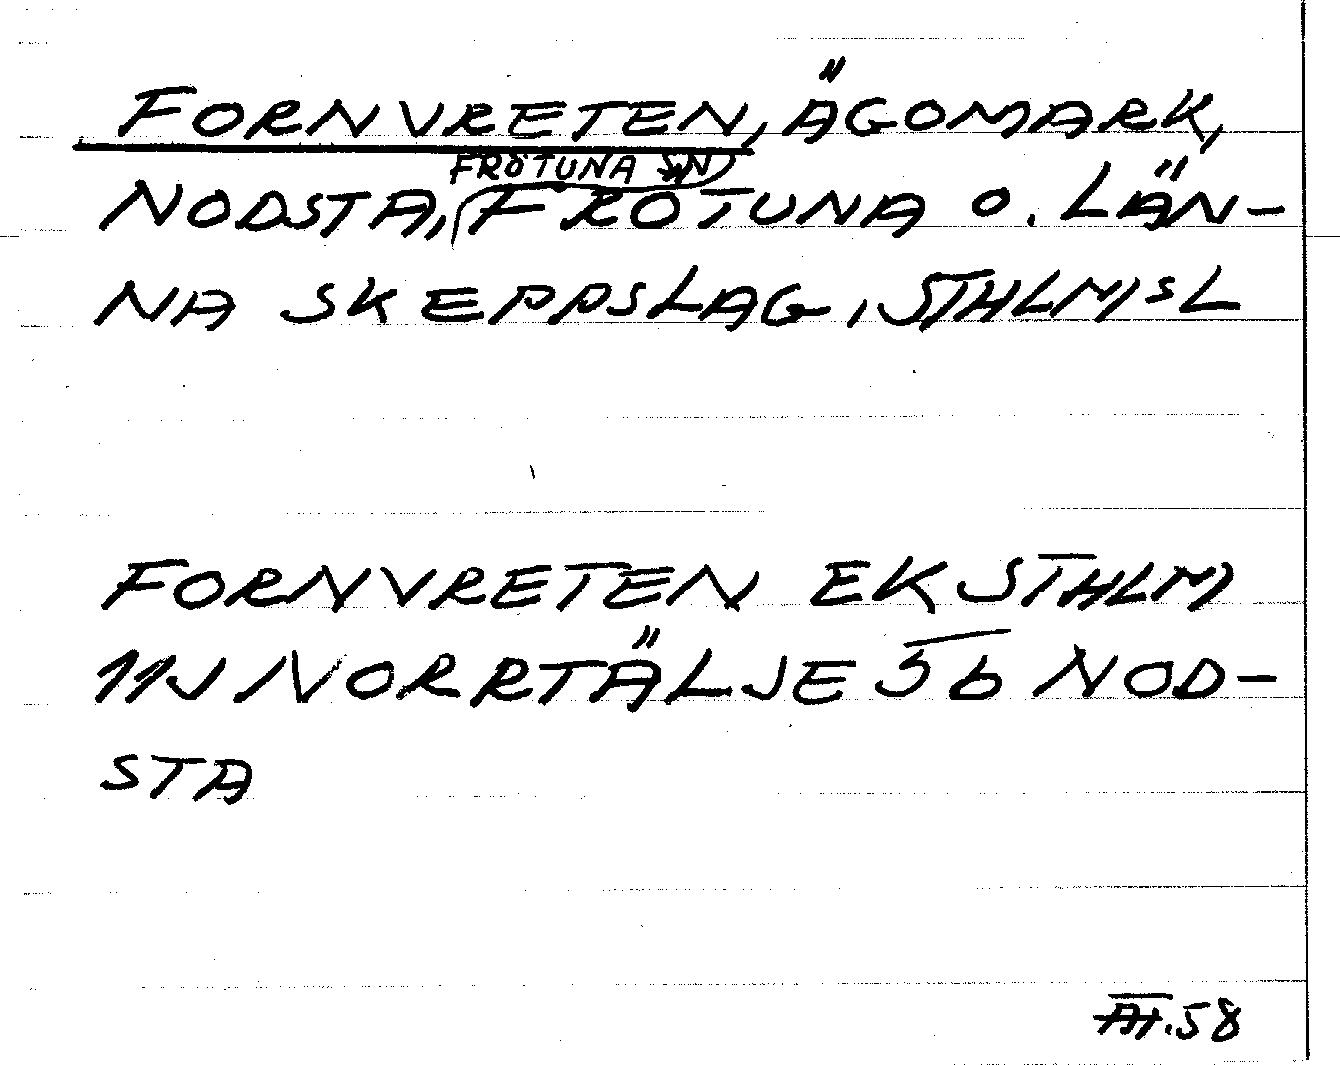 FORNVRETEN, ÄGOMARK,
FRÖTUNA SN
NODSTA, FRÖTUNA O. LÄN-
NA SKEPPSLAG, STHLMSL
FORNVRETEN EK STHLM
11J NORRTÄLJE 5b NOD-
STA
.58